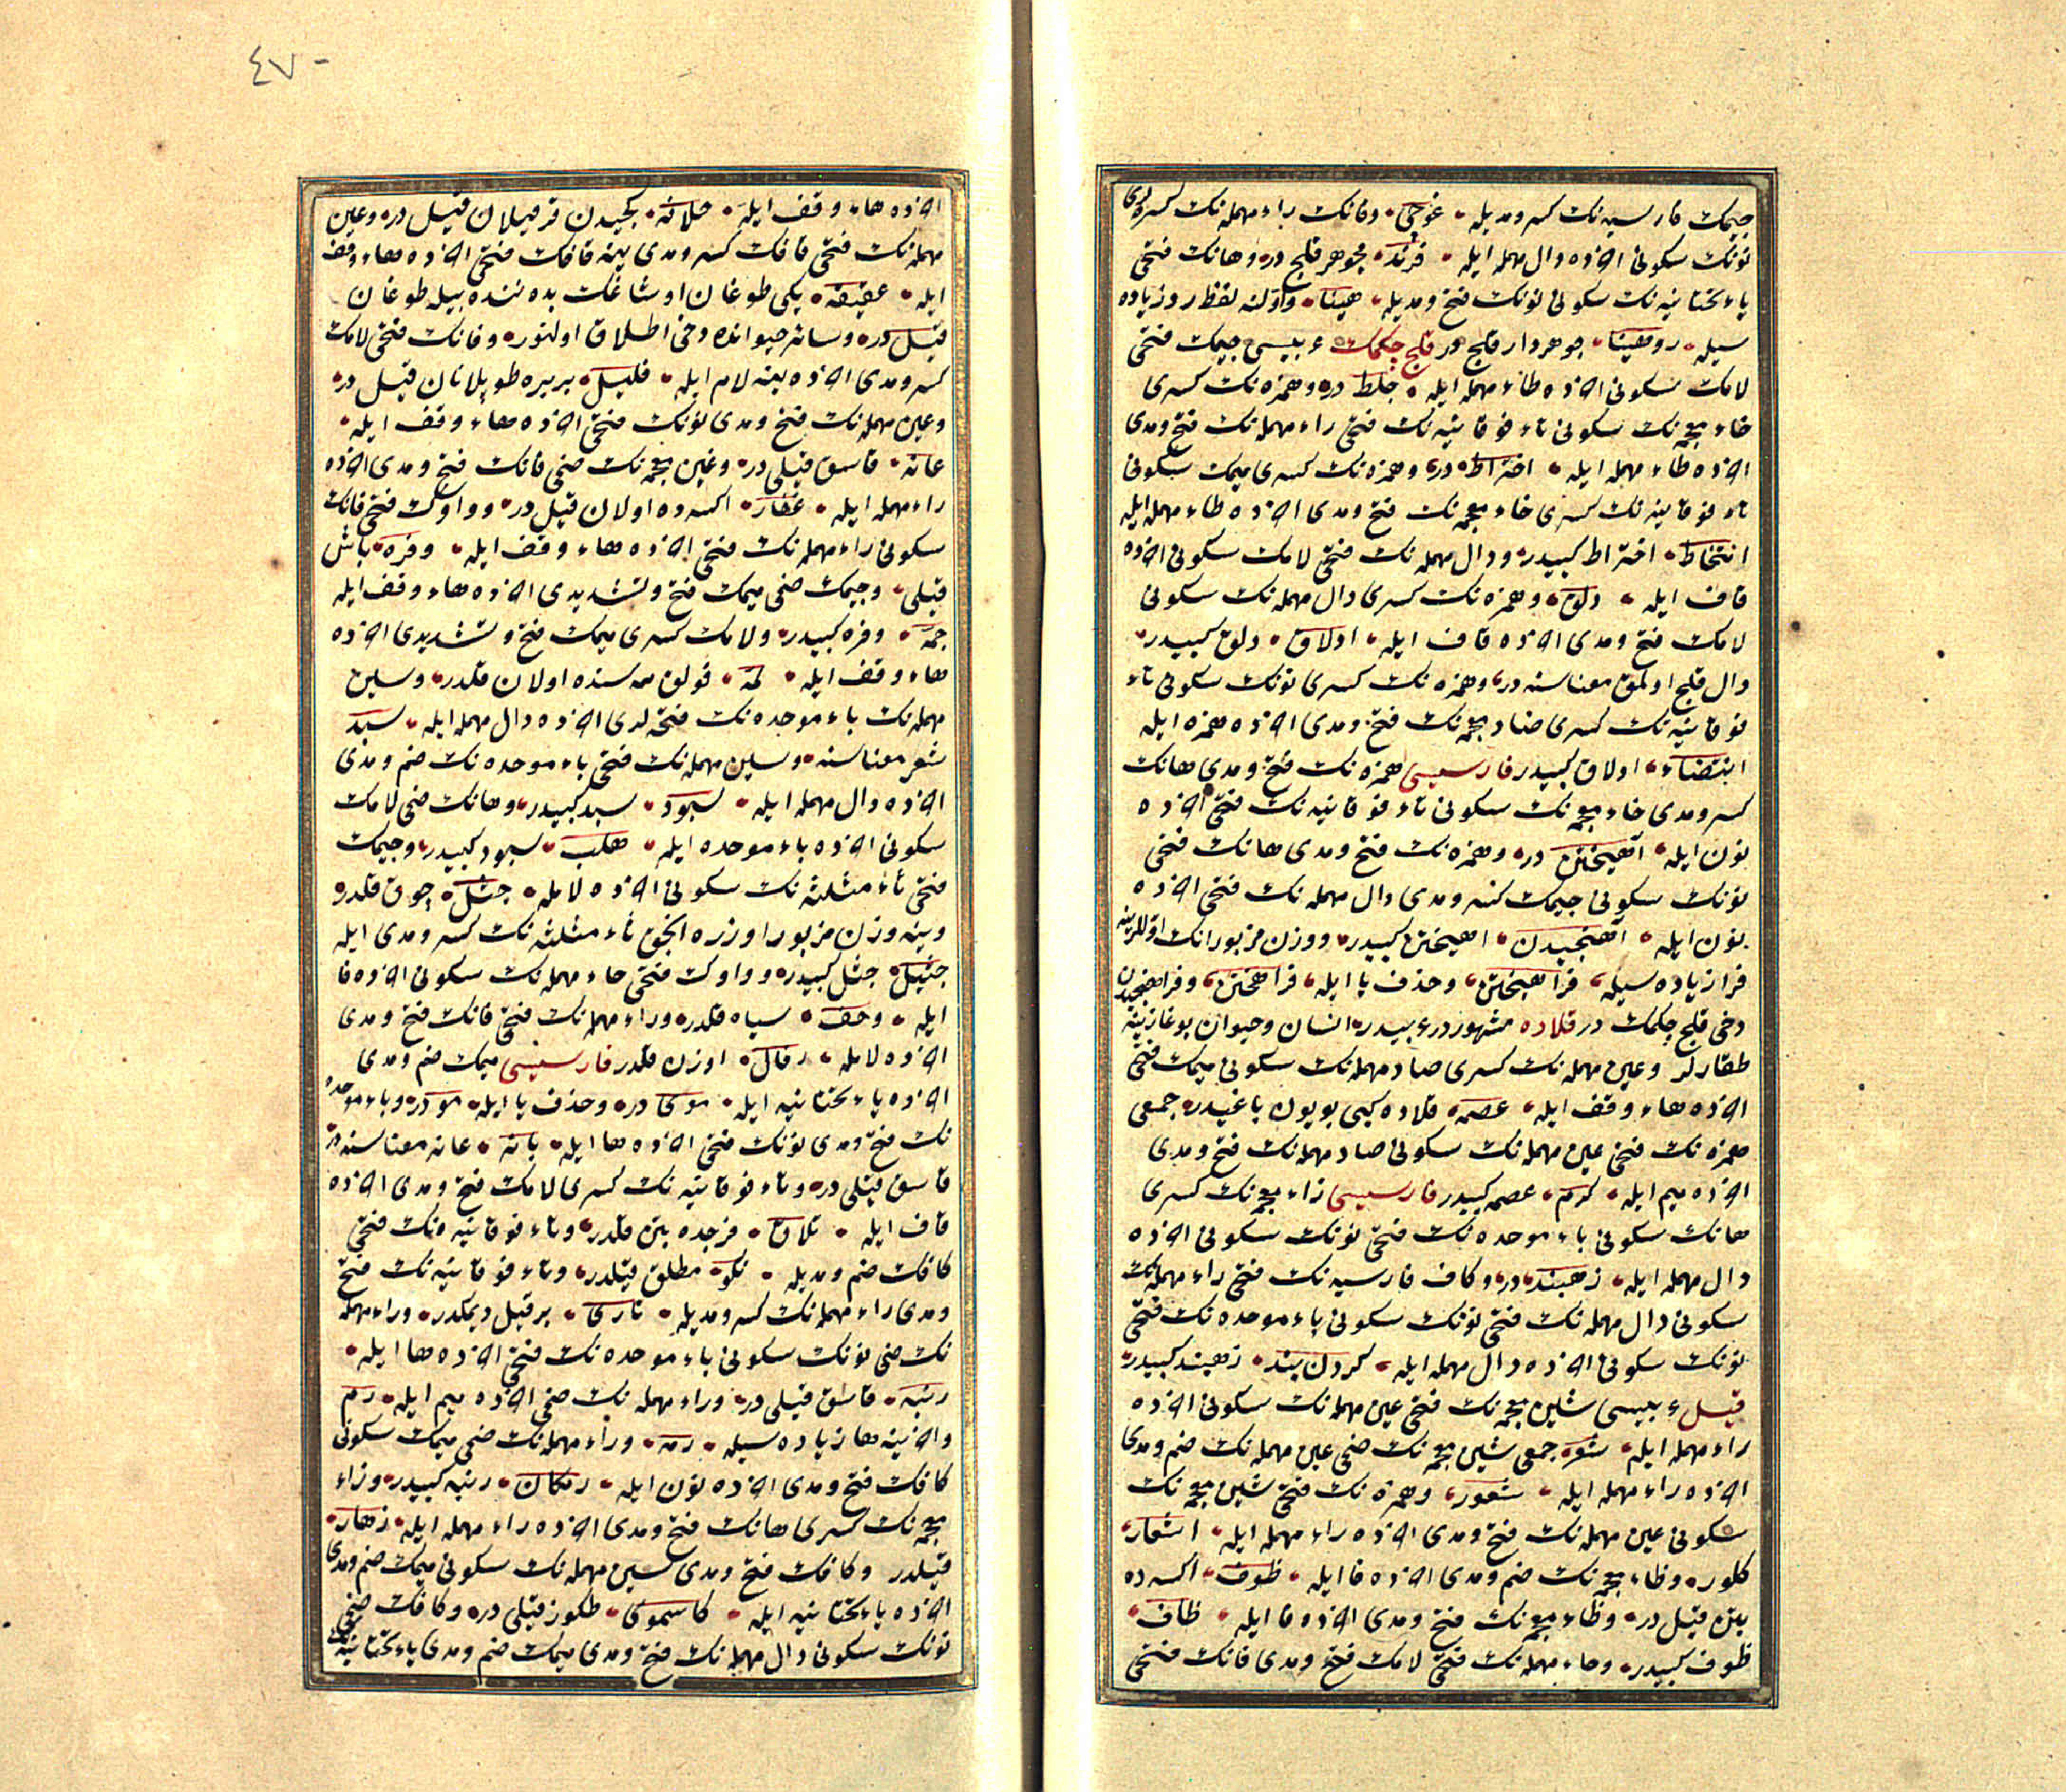 جيمك فارسيه نك كسر ومديله غوچى وفانك راء مهمله نك كسره لرى
نونك سكونى اخرده دال مهمله ايله فرند جوهر قلج در وهانك فتحى
ياء تحتانيه نك سكونى نونك فتح ومديله هينا واولنه لفظ رو زياده
سيله روهينا جوهردار قلج در قلج چكمك عربيسى جيمك فتحى
لامك سكونى اخرده طاء مهمله ايله جلط در وهمزه نك كسرى
خاء معجمه نك سكونى تاء فوقانيه نك فتحى راء مهمله نك فتح ومدى
اخرده طاء مهمله ايله اختراط در وهمزه نك كسرى ميمك سكونى
تاء فوقانيه نك كسرى خاء معجمه نك فتح ومدى اخرده طاء مهمله ايله
امتخاط اختراط كبيدر ودال مهمله نك فتحى لامك سكونى اخرده
قاف ايله دلق وهمزه نك كسرى دال مهمله نك سكونى
لامك فتح ومدى اخرده قاف ايله ادلاق دلق كبيدر
دال قلج اولمق معناسنه در وهمزه نك كسرى نونك سكونى تاء
فوقانيه نك كسرى ضاد معجمه نك فتح ومدى اخرده همزه ايله
انتضاء ادلاق كبيدر فارسيسى همزه نك فتح ومدى هانك
كسر ومدى خاء معجمه نك سكونى تاء فوقانيه نك فتحى اخرده
نون ايله آهيختن در وهمزه نك فتح ومدى هانك فتحى
نونك سكونى جيمك كسر ومدى دال مهمله نك فتحى اخرده
نون ايله آهنجيدن اهيختن كبيدر ووزن مزبورانك اوللرينه
فرا زياده سيله فراهيختن وحذف يا ايله فراهختن وفراهنجيدن
دخى قلج چكمك در قلاده مشهوردر عربيدر انسان وحيوان بوغازينه
طقارلر وعين مهمله نك كسرى صاد مهمله نك سكونى ميمك فتحى
اخرده هاء وقف ايله عصمه قلاده كبى بويون باغيدر جمعى
همزه نك فتحى عين مهمله نك سكونى صاد مهمله نك فتح ومدى
اخرده ميم ايله كرم عصمه كبيدر فارسيسى زاء معجمه نك كسرى
هانك سكونى باء موحده نك فتحى نونك سكونى اخرده
دال مهمله ايله زهبند در وكاف فارسيه نك فتحى راء مهمله نك
سكونى دال مهمله نك فتحى نونك سكونى باء موحده نك فتحى
نونك سكونى اخرده دال مهمله ايله كردن بند زهبند كبيدر
قيل عربيسى شين معجمه نك فتحى عين مهمله نك سكونى اخرده
راء مهمله ايله شعر جمعى شين معجمه نك ضمى عين مهمله نك ضم ومدى
اخرده راء مهمله ايله شعور وهمزه نك فتحى شين معجمه نك
سكونى عين مهمله نك فتح ومدى اخرده راء مهمله ايله اشعار
كلور وظاء معجمه نك ضم ومدى اخرده فا ايله ظوف اكسه ده
بتن قيل در وظاء معجمه نك فتح ومدى اخرده فا ايله ظاف
ظوف كبيدر وحاء مهمله نك فتحى لامك فتح ومدى فانك فتحى
٤٧
اخرده هاء وقف ايله حلاقه كچيدن قرقيلان قيل در وعين
مهمله نك فتحى قافك كسر ومدى ينه قافك فتحى اخرده هاء وقف
ايله عقيقه يكى طوغان اوشاغك بدننده بيله طوغان
قيل در وسائر حيوانده دخى اطلاق اولنور وفانك فتحى لامك
كسر ومدى اخرده ينه لام ايله فليل بربره طوپلانان قيل در
وعين مهمله نك فتح ومدى نونك فتحى اخرده هاء وقف ايله
عانه قاسق قيلى در وغين معجمه نك ضمى فانك فتح ومدى اخرده
راء مهمله ايله غفار اكسه ده اولان قيل در وواوك فتحى فانك
سكونى راء مهمله نك فتحى اخرده هاء وقف ايله وفره باش
قيلى وجيمك ضمى ميمك فتح وتشديدى اخرده هاء وقف ايله
جمه وفره كبيدر ولامك كسرى ميمك فتح وتشديدى اخرده
هاء وقف ايله لمه قولق ممه سنده اولان قلدر وسين
مهمله نك باء موحده نك فتحه لرى اخرده دال مهمله ايله سبد
شعر معناسنه وسين مهمله نك فتحى باء موحده نك ضم ومدى
اخرده دال مهمله ايله سبود سبد كبيدر وهانك ضمى لامك
سكونى اخرده باء موحده ايله هلب سبود كبيدر وجيمك
فتحى ثاء مثلثه نك سكونى اخرده لامله جثل چوق قلدر
وينه وزن مزبور اوزره انجق ثاء مثلثه نك كسر ومدى ايله
جثيل جثل كبيدر وواوك فتحى حاء مهمله نك سكونى اخرده فا
ايله وحف سياه قلدر وراء مهمله نك فتحى فانك فتح ومدى
اخرده لامله رفال اوزن قلدر فارسيسى ميمك ضم ومدى
اخرده ياء تحتانيه ايله موى در وحذف يا ايله مو در وباء موحده
نك فتح ومدى نونك فتحى اخرده ها ايله بانه عانه معناسنه در
قاسق قيلى در وتاء فوقانيه نك كسرى لامك فتح ومدى اخرده
قاف ايله تلاق فرجده بتن قلدر وتاء فوقانيه نك فتحى
كافك ضم ومديله تكو مطلق قيلدر وتاء فوقانيه نك فتح
ومدى راء مهمله نك كسر ومديله تارى بر قيل ديمكدر وراء مهمله
نك ضمى نونك سكونى باء موحده نك فتحى اخرده ها ايله
رنبه قاسق قيلى در وراء مهمله نك ضمى اخرده ميم ايله رم
واخرينه ها زياده سيله رمه وراء مهمله نك ضمى ميمك سكونى
كافك فتح ومدى اخرده نون ايله رمكان رنبه كبيدر وزاء
معجمه نك كسرى هانك فتح ومدى اخرده راء مهمله ايله زهار
قيلدر وكافك فتح ومدى سين مهمله نك سكونى ميمك ضم ومدى
اخرده ياء تحتانيه ايله كاسموى طكوز قيلى در وكافك ضمى
نونك سكونى دال مهمله نك فتح ومدى ميمك ضم ومدى ياء تحتانيه